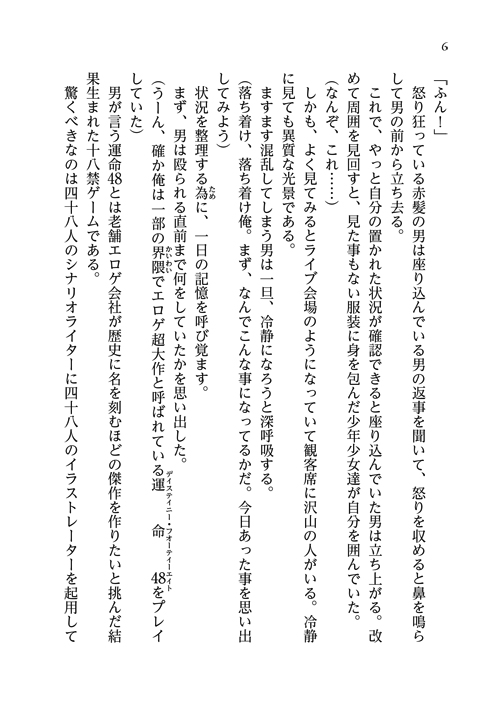 6
「ふん！」
　怒り狂っている赤髪の男は座り込んでいる男の返事を聞いて、怒りを収めると鼻を鳴ら
して男の前から立ち去る。
　これで、やっと自分の置かれた状況が確認できると座り込んでいた男は立ち上がる。改
めて周囲を見回すと、見た事もない服装に身を包んだ少年少女達が自分を囲んでいた。
（なんぞ、これ……）
　しかも、よく見てみるとライブ会場のようになっていて観客席に沢山の人がいる。冷静
に見ても異質な光景である。
　ますます混乱してしまう男は一旦、冷静になろうと深呼吸する。
（落ち着け、落ち着け俺。まず、なんでこんな事になってるかだ。今日あった事を思い出
してみよう）
　状況を整理する為ために、一日の記憶を呼び覚ます。
　まず、男は殴られる直前まで何をしていたかを思い出した。
（うーん、確か俺は一部の界隈かいわいでエロゲ超大作と呼ばれている運命48デイステイニー・フオーテイーエイトをプレイ
していた）
　男が言う運命48とは老舗エロゲ会社が歴史に名を刻むほどの傑作を作りたいと挑んだ結
果生まれた十八禁ゲームである。
　驚くべきなのは四十八人のシナリオライターに四十八人のイラストレーターを起用して